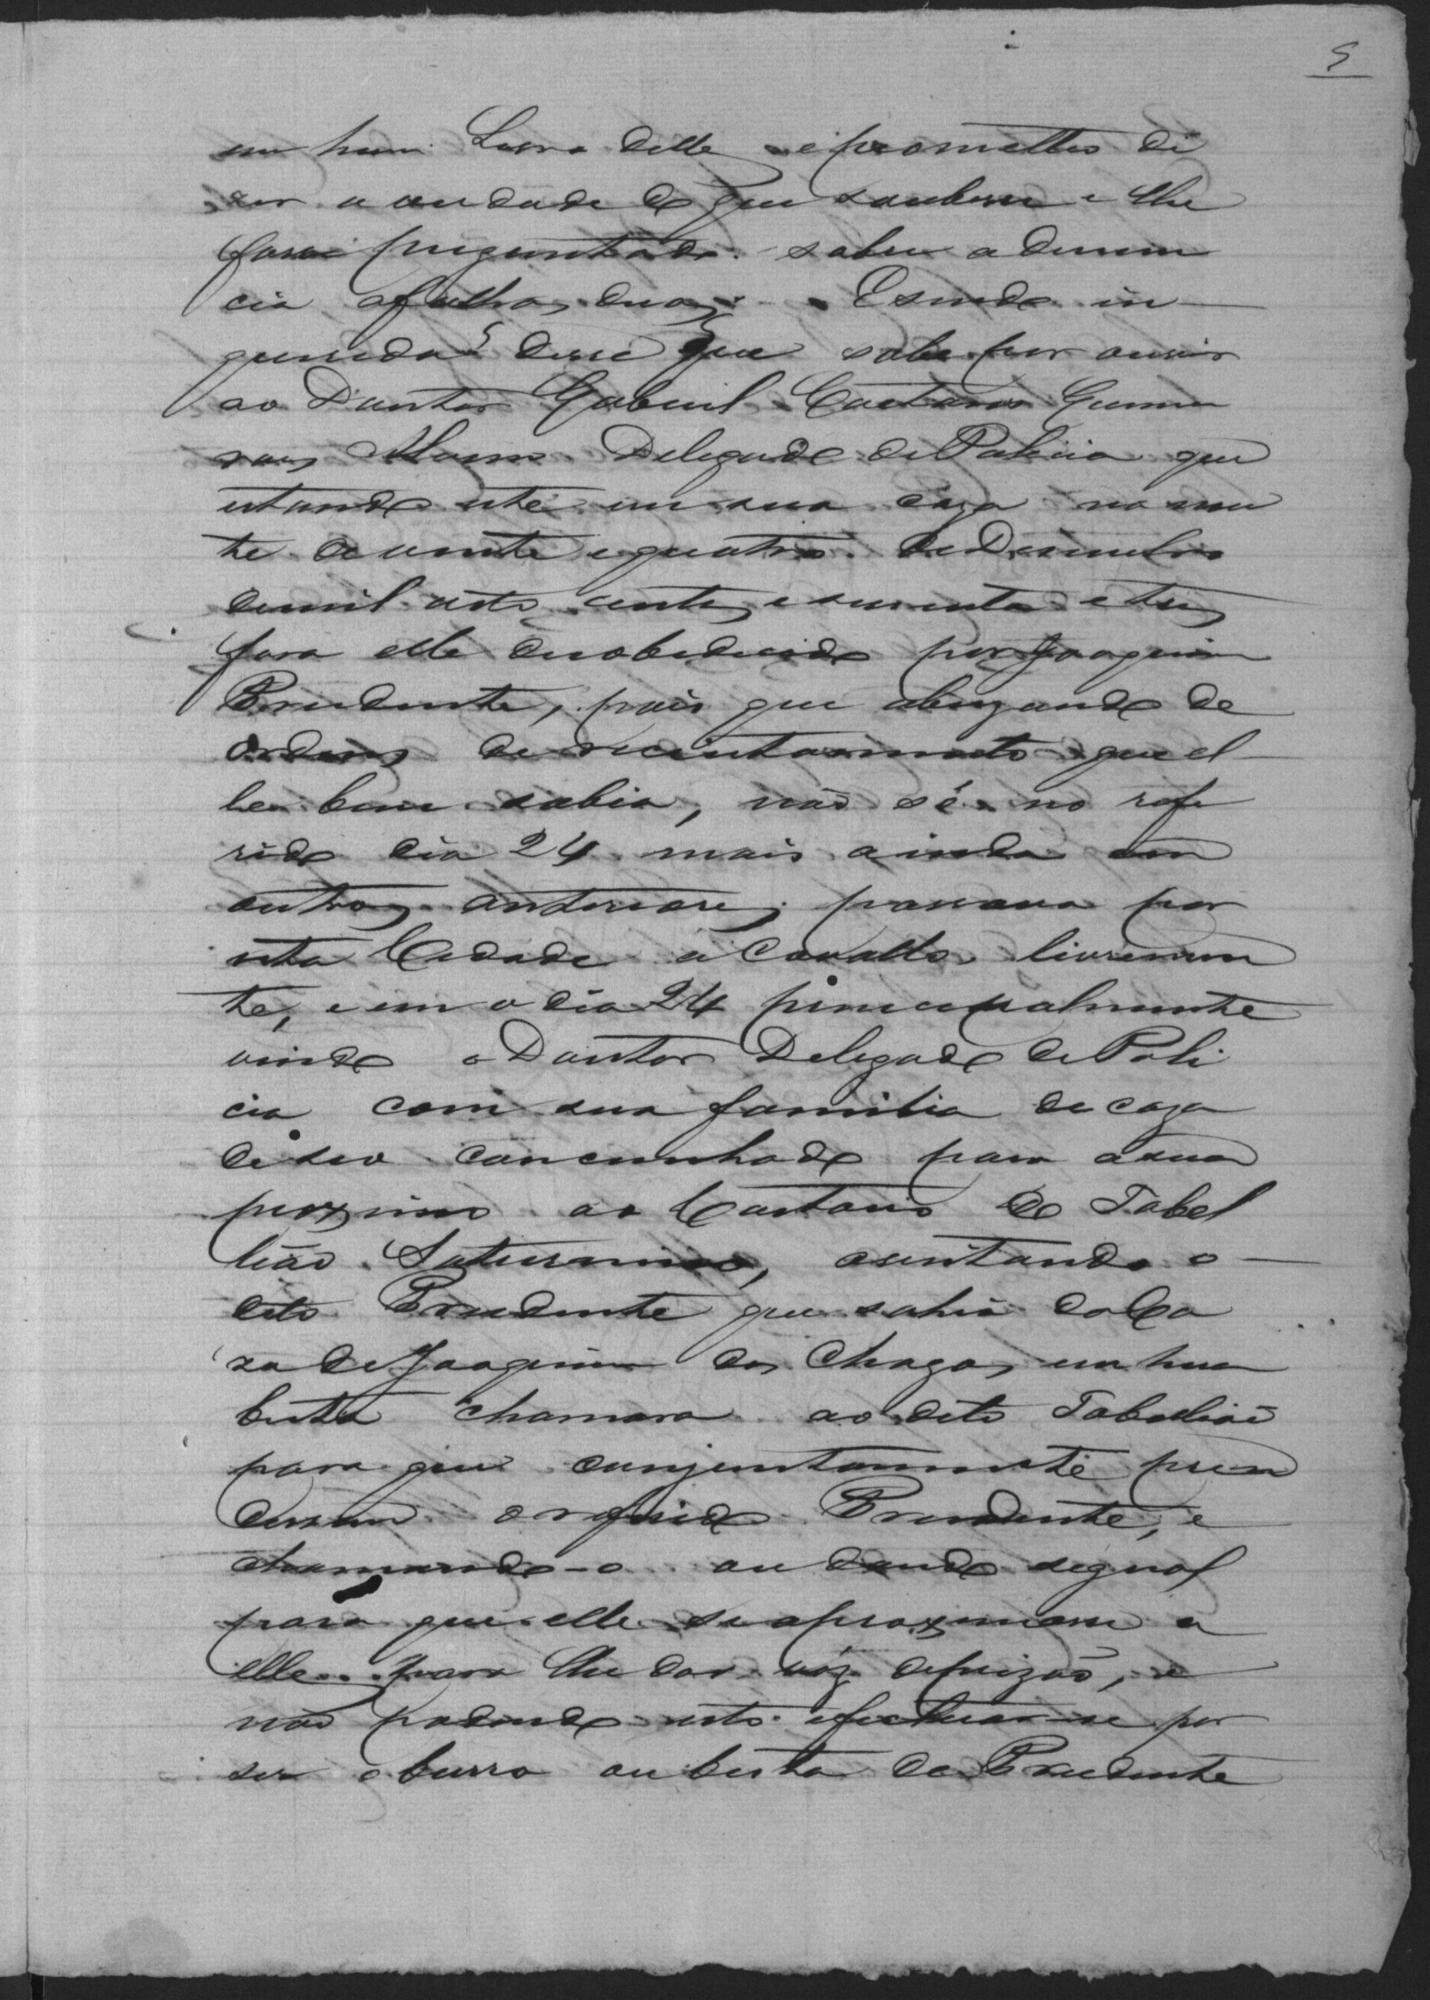 5
em hum Livro delle e prometteo di
zer a verdade do que soubesse e lhe
fosse preguntado sobre a denun
cia a folhas duas. E sendo in
querida disse que sabe por ouvir
ao Doutor Gabriel Caetano Guima
raes Delegado de Policia que
estando este em sua caza na noi
te de vinte e quatro de Dezembro
de mil oito centos e secenta e tres
fora elle desobedecido por Joaquim
Prudente, pois que abuzando de
ordens de recintamento que el
le bem sabia, não só no refe
rido dia 24 mais ainda em
outros anteriores passava por
esta Cidade a Cavallo livremen
te, e em o dia 24 principalmente
vindo o Doutor Delegado de Poli
cia com sua familia de caza
de seo concunhado para a sua
proximo ao Cartorio do Tabel
lião Saturnino, avistando o
dito Prudente que sahia da Ca
za de Joaquim das Chagas em hua
besta chamara ao dito Tabellião
para que conjuntamente pren
dessem o referido Prudente, e
chamando-o ou dando signal
para que elle se aproximasse a
elle para lhe dar voz de prizão, e
não podendo isto efectuar-se por
ser o burro ou besta de Prudente